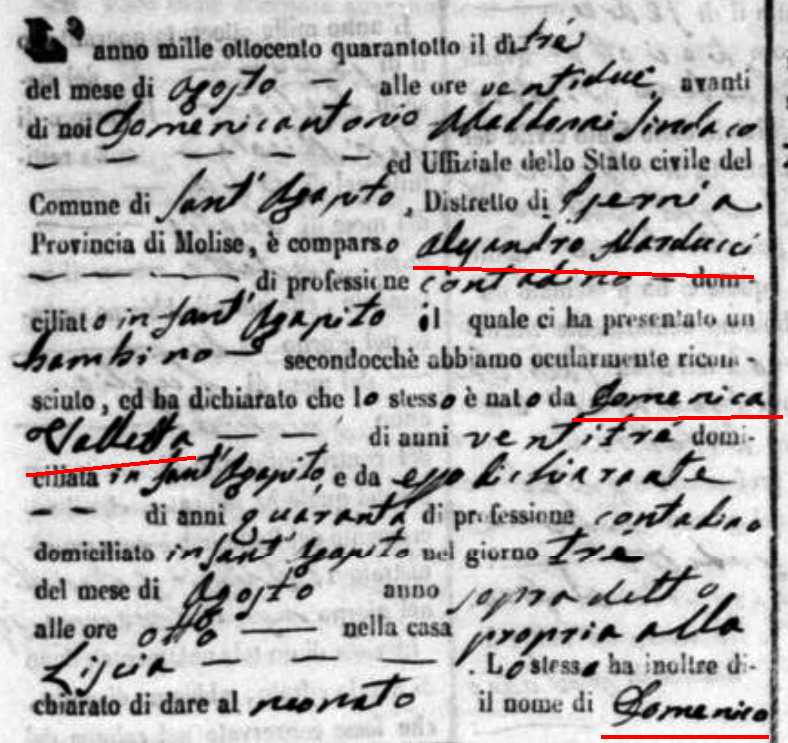 L'anno mille ottocento quarantotto il dì tré
del mese di Agosto — alle ore ventidue, avanti
di noi Domenicantonio Sindaco
— — — — — ed Uffiziale dello Stato civile del
Comune di Sant' Agapito, Distretto di Isernia
Provincia di Molise, è comparso Alesandro Narducci
— — — di professione contadino — domi-
ciliato in Sant' Agapito il quale ci ha presentato un
bambino — secondocchè abbiamo ocularmente ricono-
sciuto, ed ha dichiarato che lo stesso è nato da Domenica
Valletta — — di anni ventitré domi-
ciliata in Sant' Agapito, e da esso dichiarante
— — di anni quaranta di professione contadino
domiciliato in Sant' Agapito nel giorno tré
del mese di Agosto anno sopradetto
alle ore otto — nella casa propria alla
Liscia — — — — . Lo stesso ha inoltre di-
chiarato di dare al neonato il nome di Domenico